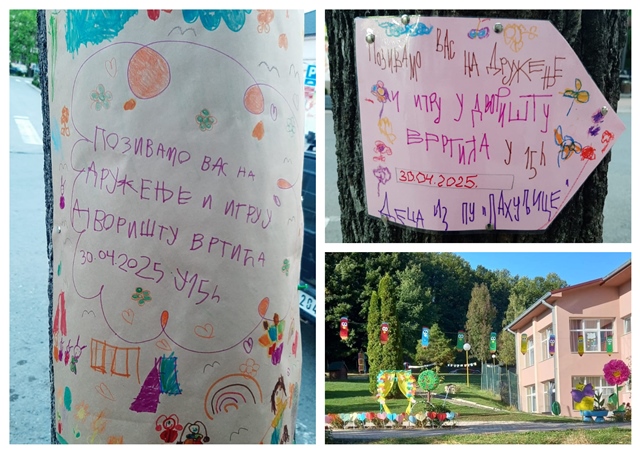 ПОЗИВАМО ВАС НА
ДРУЖЕЊЕ И ИГРУ У
ДВОРИШТУ ВРТИЋА
30.04.2025. У 15h
ПОЗИВАМО ВАС НА ДРУЖЕЊЕ
И ИГРУ У ДВОРИШТУ
ВРТИЋА У 15h
30.04.2025.
ДЕЦА ИЗ ПУ „ПАХУЉИЦЕ"